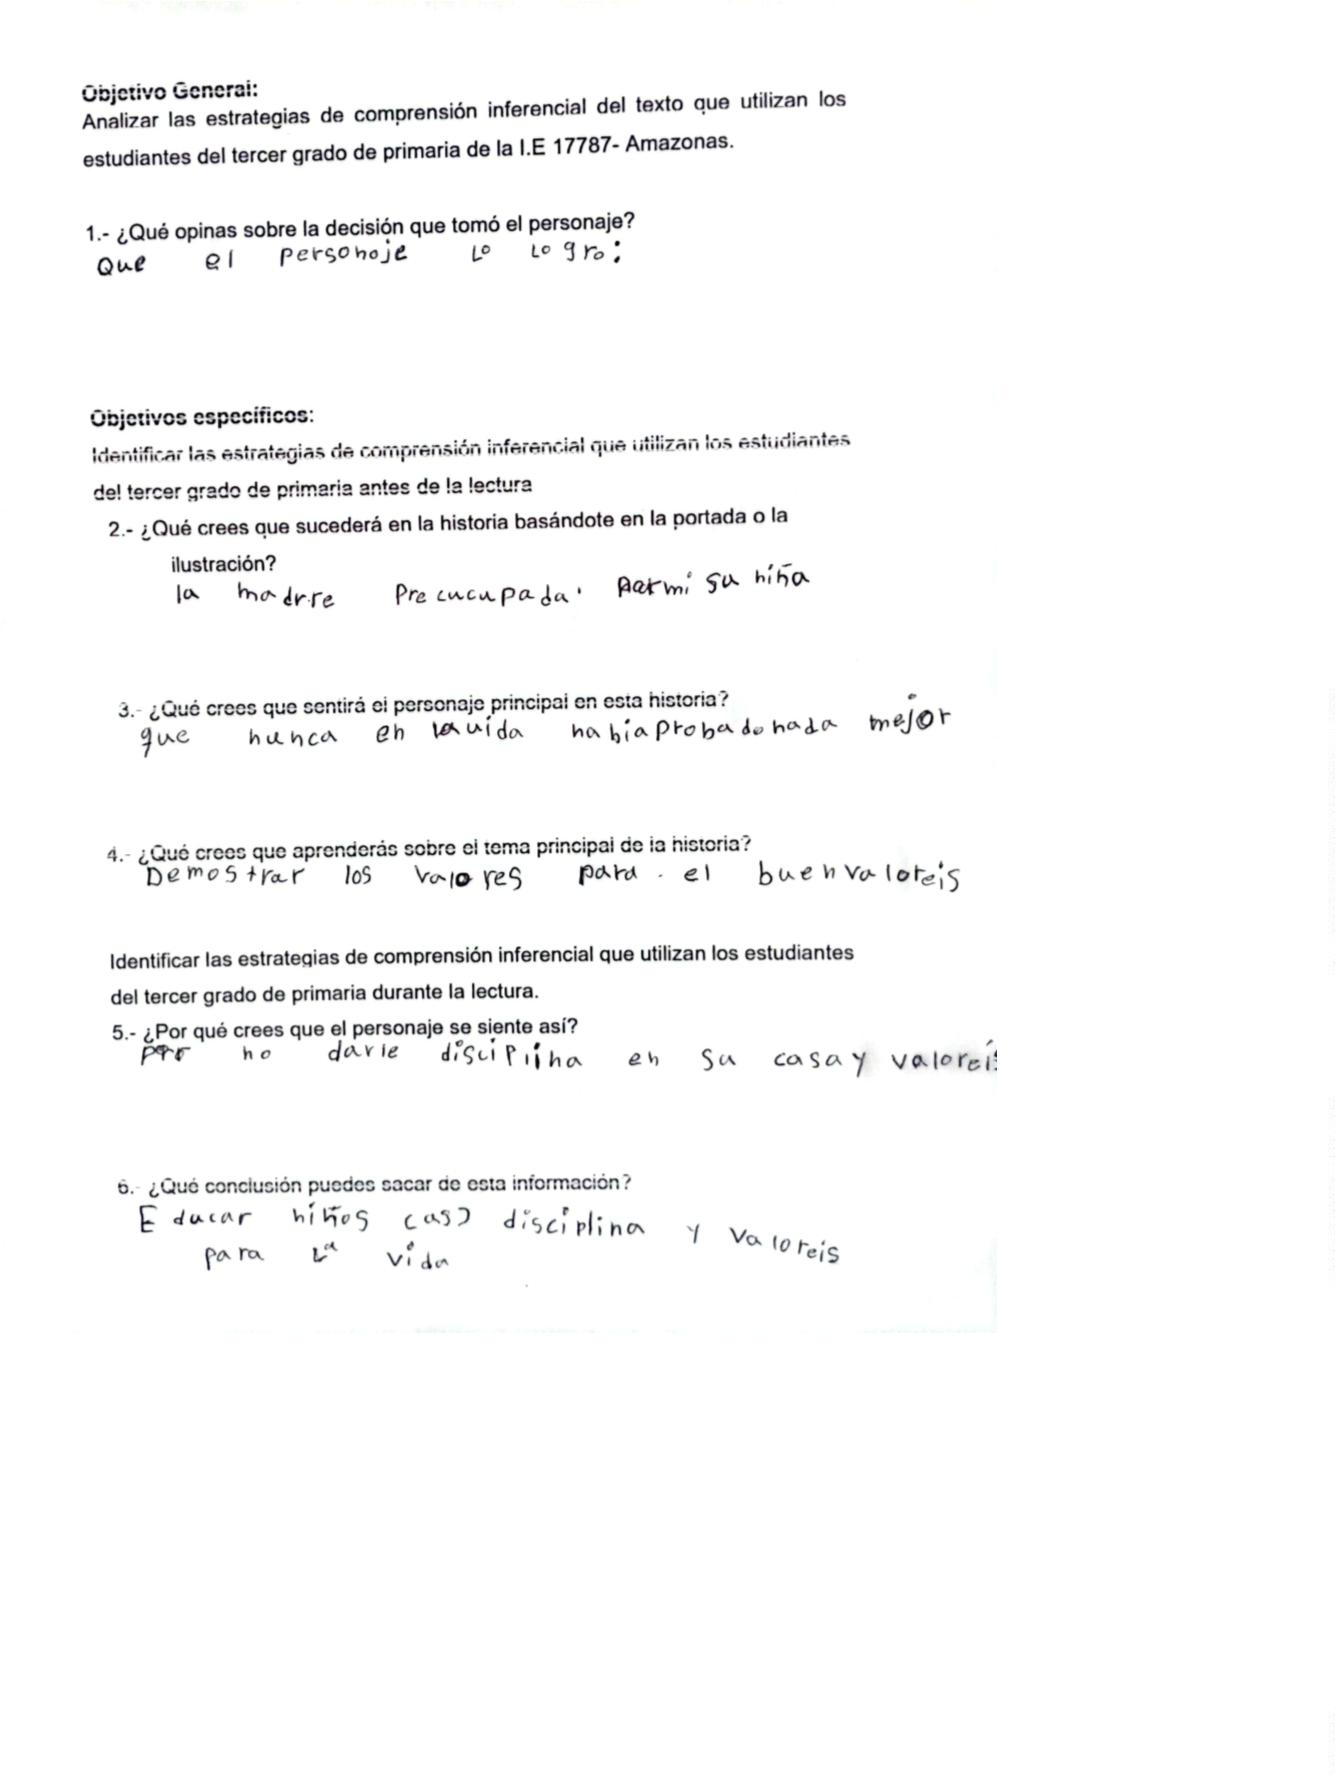 Objetivo General:
Analizar las estrategias de comprensión inferencial del texto que utilizan los
estudiantes del tercer grado de primaria de la I.E 17787- Amazonas.
1.- ¿Qué opinas sobre la decisión que tomó el personaje?
Que el personoje Lo Logro:
Objetivos específicos:
Identificar las estrategias de comprensión inferencial que utilizan los estudiantes
del tercer grado de primaria antes de la lectura
2.- ¿Qué crees que sucederá en la historia basándote en la portada o la
ilustración?
la madrre Precucupada su niña
3.- ¿Qué crees que sentirá el personaje principal en esta historia?
que nunca en la vida había probado nada mejor
4.- ¿Qué crees que aprenderás sobre el tema principal de la historia?
Demostrar los valores para el buen valoreis
Identificar las estrategias de comprensión inferencial que utilizan los estudiantes
del tercer grado de primaria durante la lectura.
5.- ¿Por qué crees que el personaje se siente así?
no darle disciplina en su casa y valoreis
6.- ¿Qué conclusión puedes sacar de esta información?
Educar niños disciplina y valoreis
para La vida